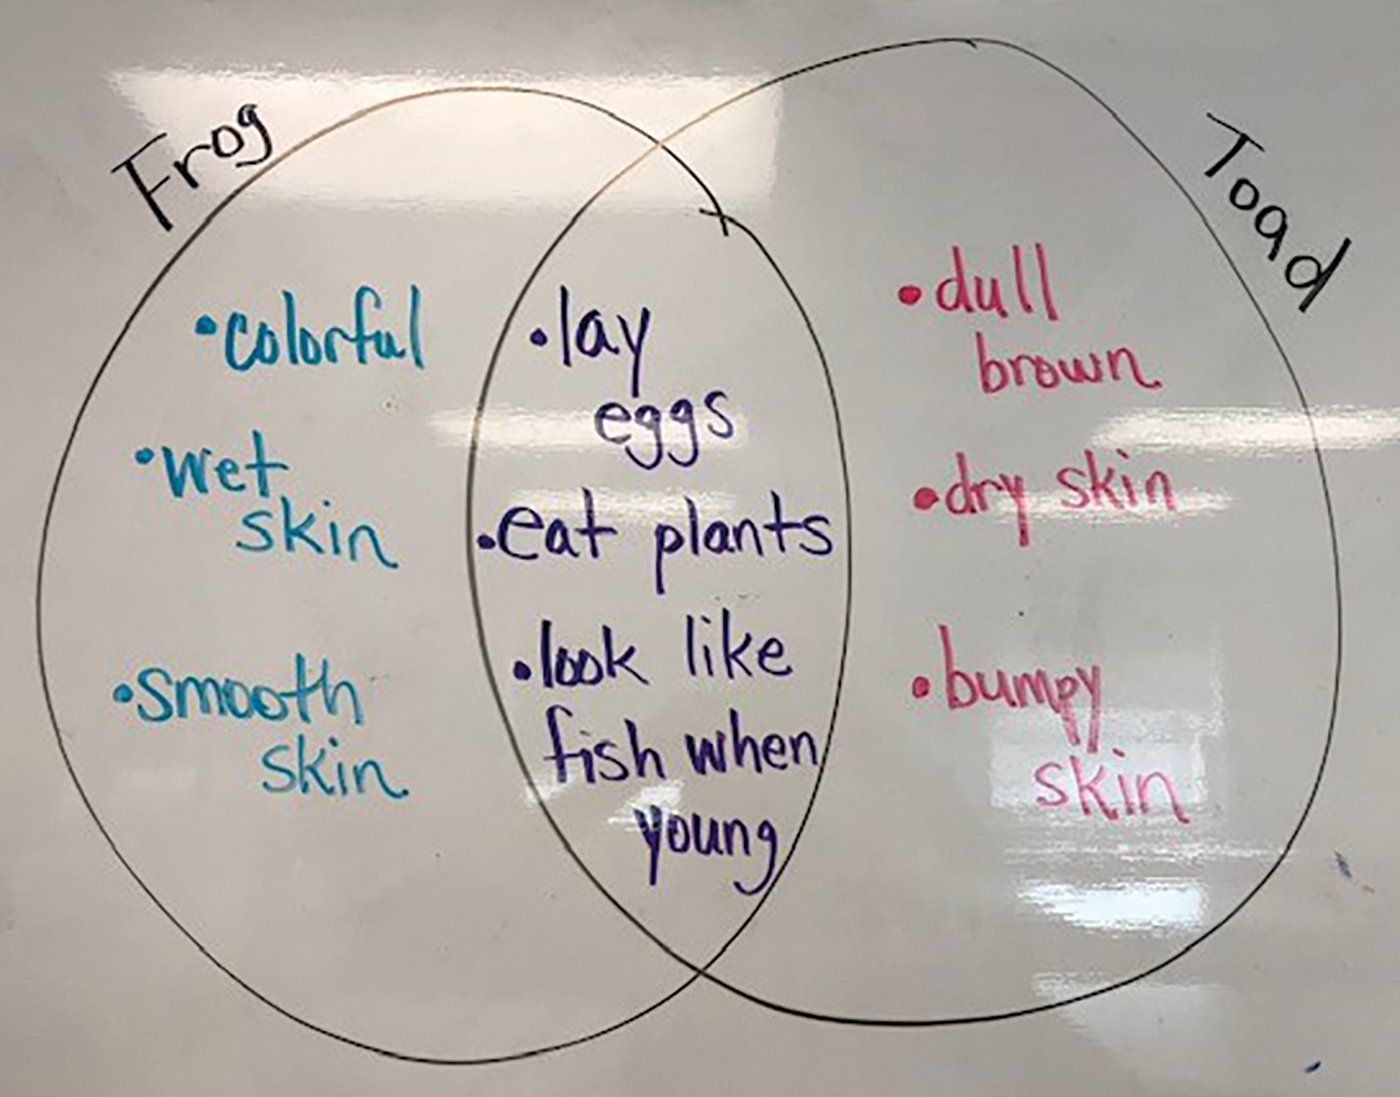 Frog
• colorful
• wet
skin
• smooth
skin
• lay
eggs
• eat plants
• look like
fish when
young
Toad
• dull
brown
• dry skin
• bumpy
skin